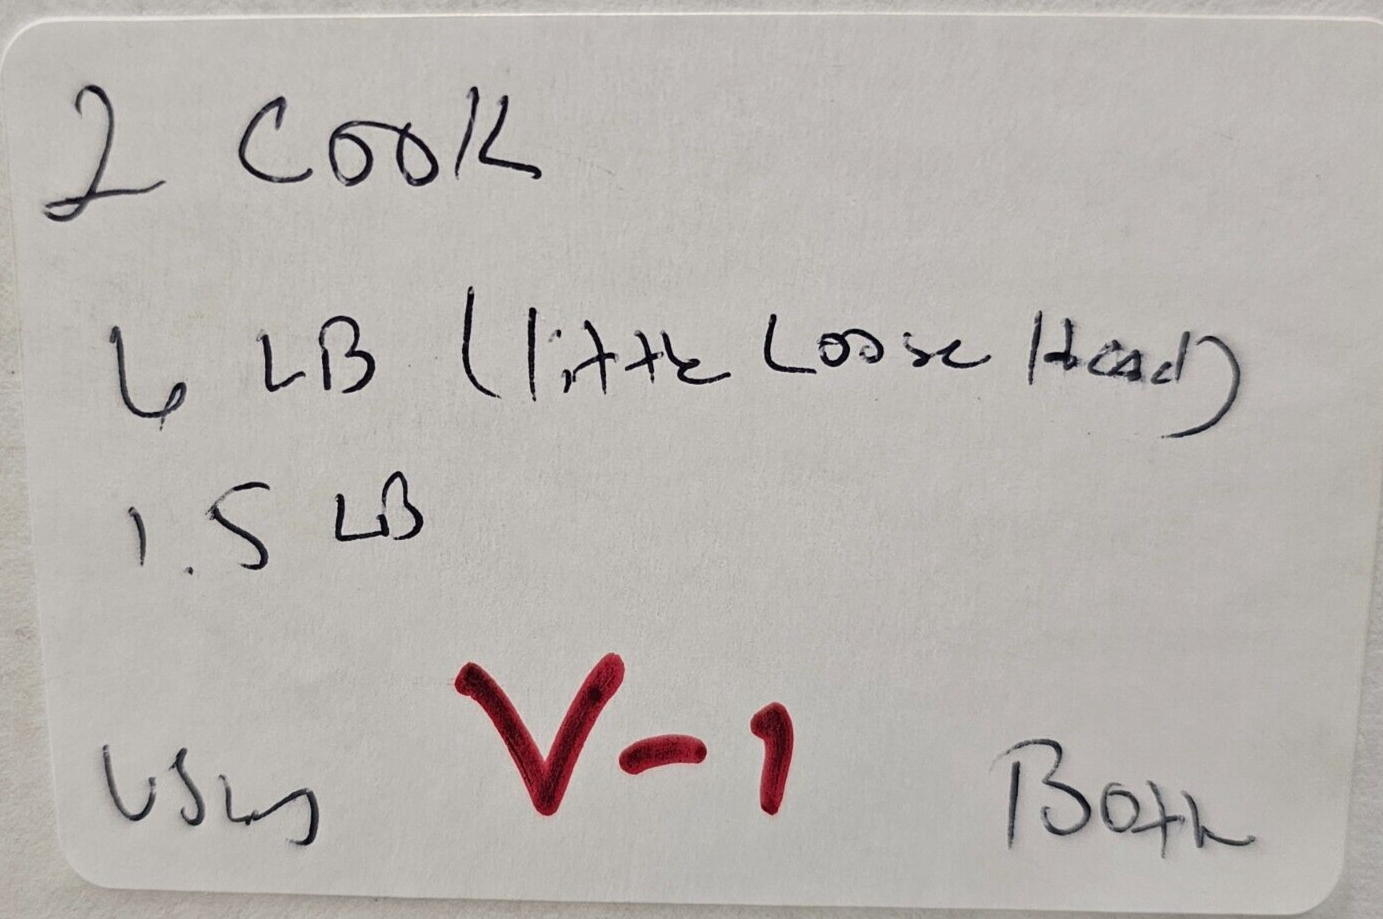 2 COOK
6 LB (little Loose Head)
1.5 LB
V-1
USING Both